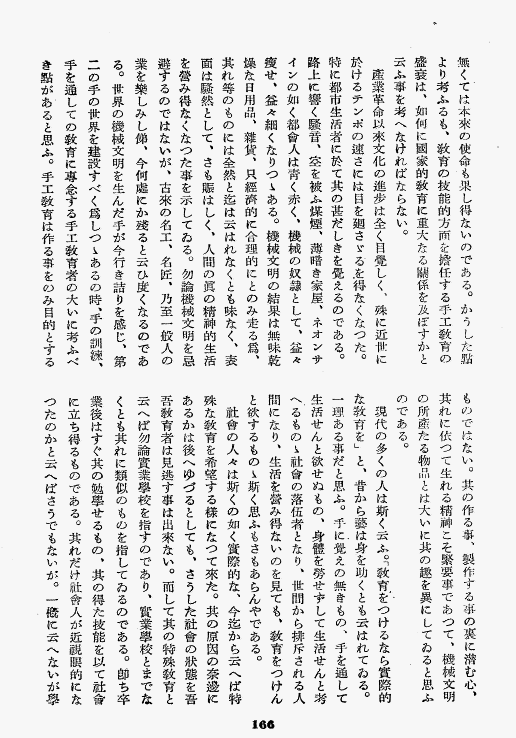 無くては本來の使命も果し得ないのである。かうした點
より考ふるも、敎育の技能的方面を擔任する手工敎育の
盛衰は、如何に國家的敎育に重大なる關係を及ぼすかと
云ふ事を考へなければならない。
産業革命以來文化の進步は全く目覺しく、殊に近世に
於けるテンポの速さには目を廻さゞるを得なくなつた。
特に都市生活者に於て其の甚だしきを覺えるのである。
路上に響く騷音、空を被ふ煤煙、薄暗き家屋、ネオンサ
インの如く都會人は靑く赤く、機械の奴隷として、益々
瘦せ、益々細くなりつゝある。機械文明の結果は無味乾
燥な日用品、雜貨、只經濟的に合理的にとのみ走る爲、
其れ等のものには全然と迄は云はれなくとも味なく、表
面は騷然として、さも賑はしく、人間の眞の精神的生活
を營み得なくなつた事を示してゐる。勿論機械文明を忌
避するのではないが、古來の名工、名匠、乃至一般人の
業を樂しみし節、今何處にか殘ると云ひ度くなるのであ
る。世界の機械文明を生んだ手が今行き詰りを感じ、第
二の手の世界を建設すべく爲しつゝあるの時、手の訓練、
手を通しての敎育に專念する手工敎育者の大いに考ふべ
き點があると思ふ。手工敎育は作る事をのみ目的とする
ものではない。其の作る事、製作する事の裏に潜む心、
其れに依つて生れる精神こそ緊要事であつて、機械文明
の所產たる物品とは大いに其の趣を異にしてゐると思ふ
のである。
現代の多くの人は斯く云ふ。「敎育をつけるなら實際的
な敎育を」と、昔から藝は身を助くとも云はれてゐる。
一理ある事だと思ふ。手に覺えの無きもの、手を通して
生活せんと欲せぬもの、身體を勞せずして生活せんと考
へるものゝ社會の落伍者となり、世間から排斥される人
間になり、生活を營み得ないのを見ても、敎育をつけん
と欲するものゝ斯く思ふもさもあらんやである。
社會の人々は斯くの如く實際的な、今迄から云へば特
殊な敎育を希望する樣になつて來た。其の原因の奈邊に
あるかは後へゆづるとしても、さうした社會の狀態を吾
吾敎育者は見逃す事は出來ない。而して其の特殊敎育と
云へば勿論實業學校を指すのであり、實業學校とまでな
くとも其れに類似のものを指してゐるのである。卽ち卒
業後はすぐ其の勉學せるもの、其の得た技能を以て社會
に立ち得るものである。其れだけ社會人が近視眼的にな
つたのかと云へばさうでもないが。一槪に云へないが學
166